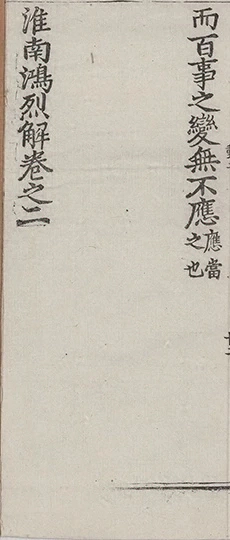 而百事之變無不應應當之也
淮南鴻烈解卷之二